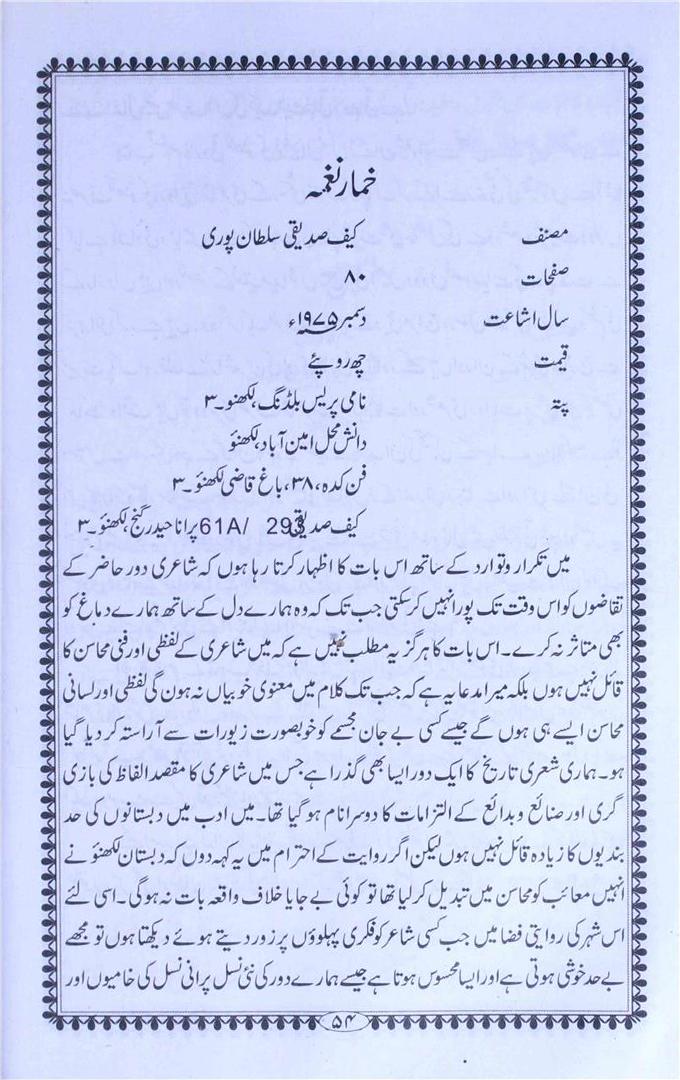 خمار نغمہ
مصنف کیف صدیقی سلطان پوری
صفحات ۸۰
سال اشاعت دسمبر ۱۹۷۵ء
قیمت چھ روپئے
پتہ نامی پریس بلڈنگ، لکھنو۔۳
دانش محل امین آباد، لکھنؤ
فن کدہ، ۳۸، باغ قاضی لکھنؤ۔۳
کیف صدیقی 29 /61A پرانا حیدر گنج، لکھنؤ۔۳
میں تکرار و توارد کے ساتھ اس بات کا اظہار کرتا رہا ہوں کہ شاعری دور حاضر کے
تقاضوں کو اس وقت تک پورا نہیں کر سکتی جب تک کہ وہ ہمارے دل کے ساتھ ہمارے دماغ کو
بھی متاثر نہ کرے۔ اس بات کا ہرگز یہ مطلب نہیں ہے کہ میں شاعری کے لفظی اور فنی محاسن کا
قائل نہیں ہوں بلکہ میرا مدعا یہ ہے کہ جب تک کلام میں معنوی خوبیاں نہ ہون گی لفظی اور لسانی
محاسن ایسے ہی ہوں گے جیسے کسی بے جان مجسمے کو خوبصورت زیورات سے آراستہ کر دیا گیا
ہو۔ ہماری شعری تاریخ کا ایک دور ایسا بھی گذرا ہے جس میں شاعری کا مقصد الفاظ کی بازی
گری اور صنائع و بدائع کے التزامات کا دوسرا نام ہو گیا تھا۔ میں ادب میں دبستانوں کی حد
بندیوں کا زیادہ قائل نہیں ہوں لیکن اگر روایت کے احترام میں یہ کہہ دوں کہ دبستان لکھنؤ نے
انہیں معائب کو محاسن میں تبدیل کر لیا تھا تو کوئی بے جا یا خلاف واقعہ بات نہ ہوگی۔ اسی لئے
اس شہر کی روایتی فضا میں جب کسی شاعر کو فکری پہلوؤں پر زور دیتے ہوئے دیکھتا ہوں تو مجھے
بے حد خوشی ہوتی ہے اور ایسا محسوس ہوتا ہے جیسے ہمارے دور کی نئی نسل پرانی نسل کی خامیوں اور
۵۴